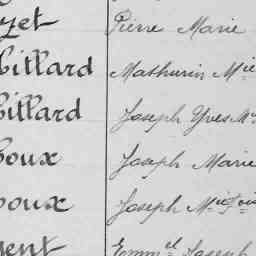 zet Pierre Marie
billard Mathurin Mie
billard Joseph Yves M
boux Joseph Marie
boux Joseph Mie
gent Emmel Joseph